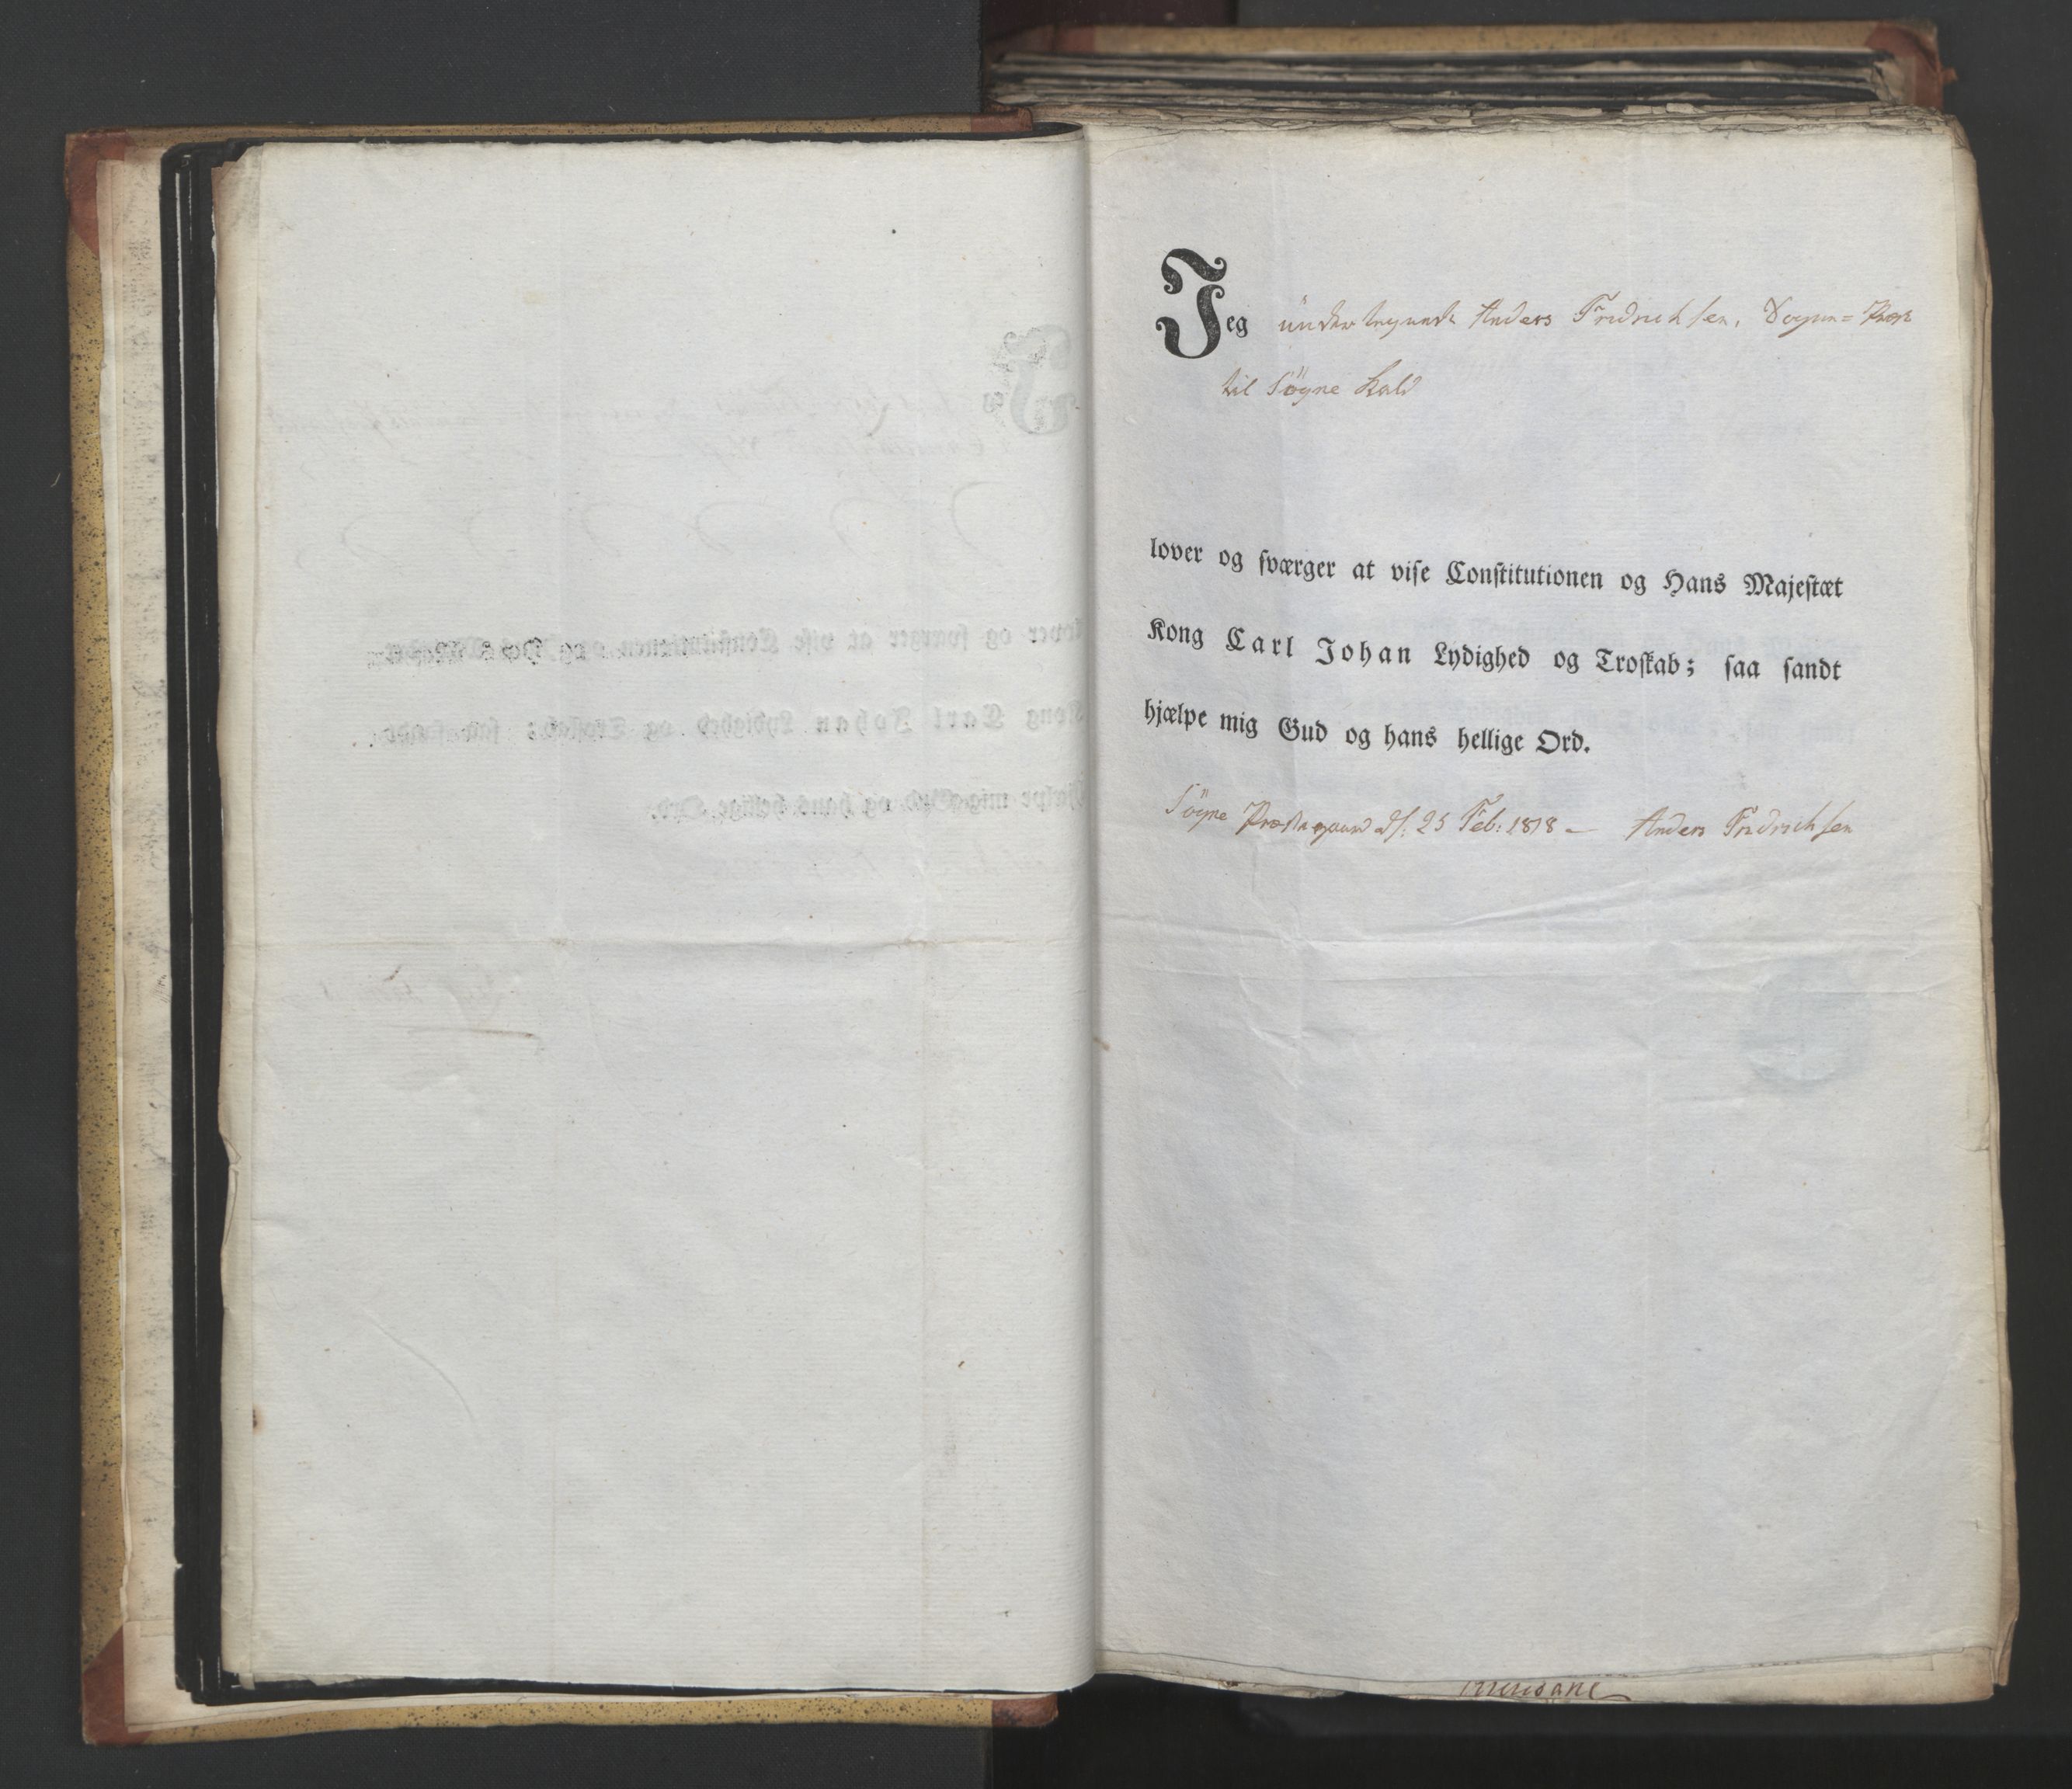 Jeg undertegnede Anders Fridrichsen, Sogne=Præst
til Sögne Kald
lover og sværger at vise Constitutionen og Hans Majestæt
Kong Carl Johan Lydighed og Troskab; saa sandt
hjælpe mig Gud og hans hellige Ord.
Sögne Præstegaard d: 25 Feb: 1818 — Anders Fridrichsen